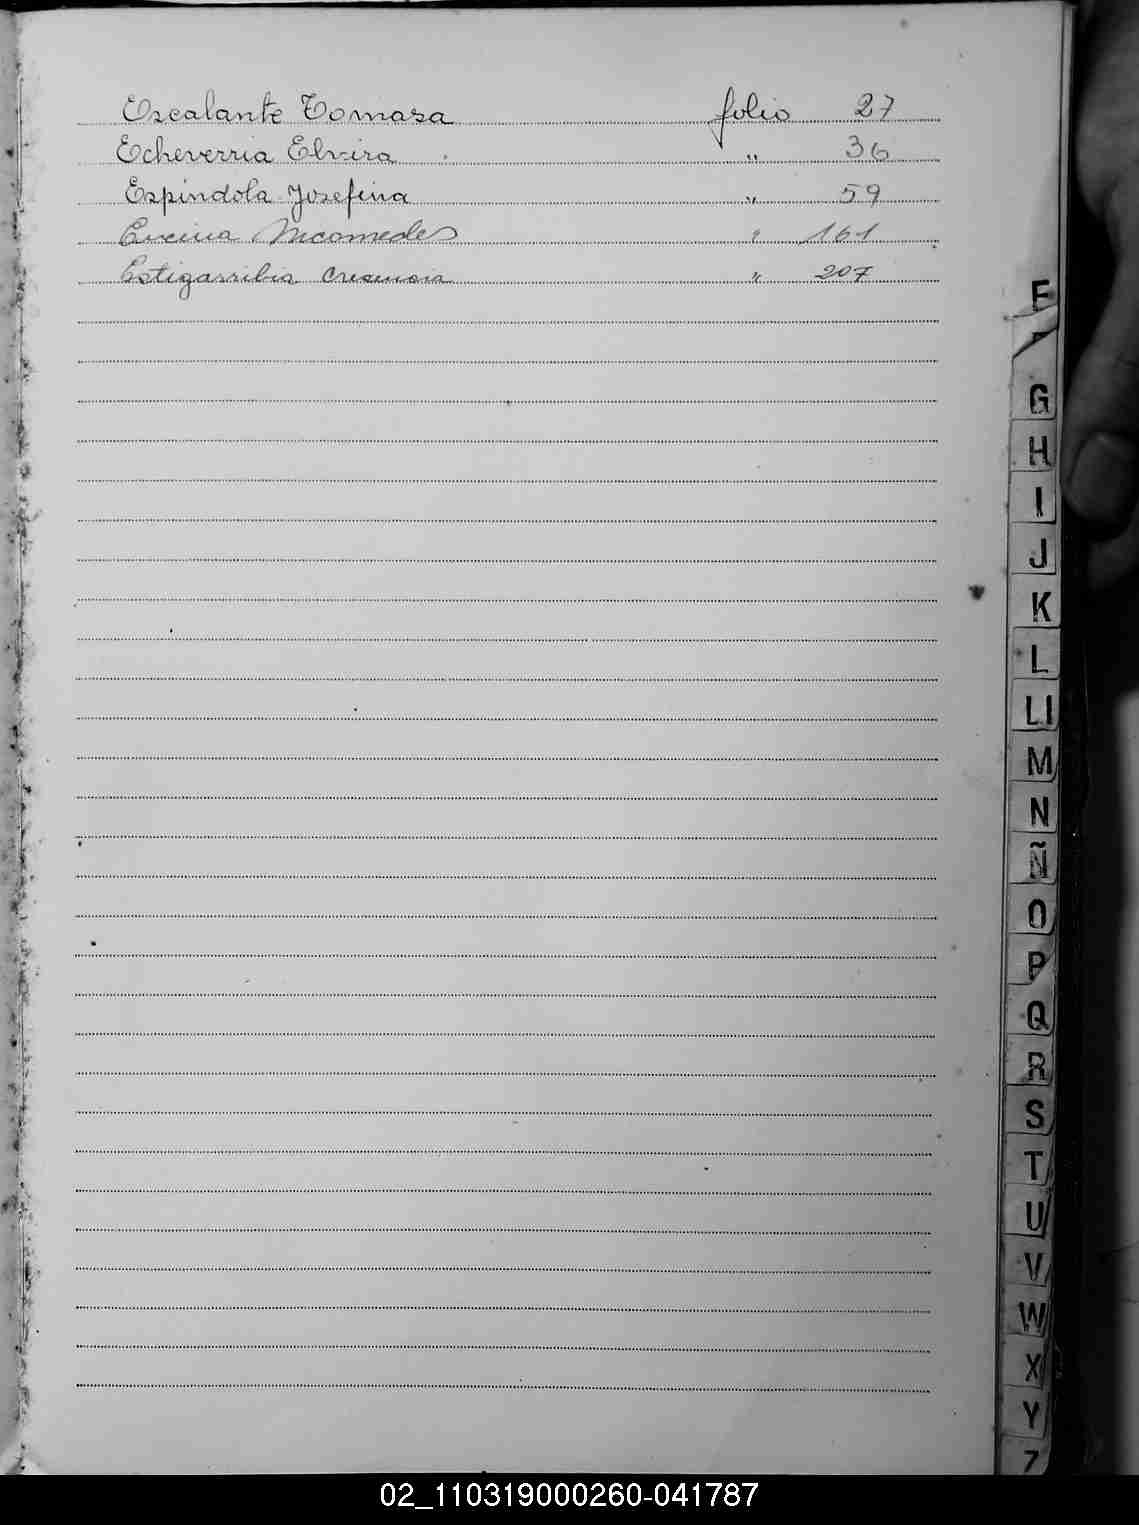 Escalante Tomasa folio 27
Echeverria Elvira " 36
Espindola Josefina " 59
Encina Nicomedes " 161
Estigarribia Cresencia " 207
E
G
H
I
J
K
L
Ll
M
N
Ñ
O
P
Q
R
S
T
U
V
W
X
Y
Z
02_110319000260-041787